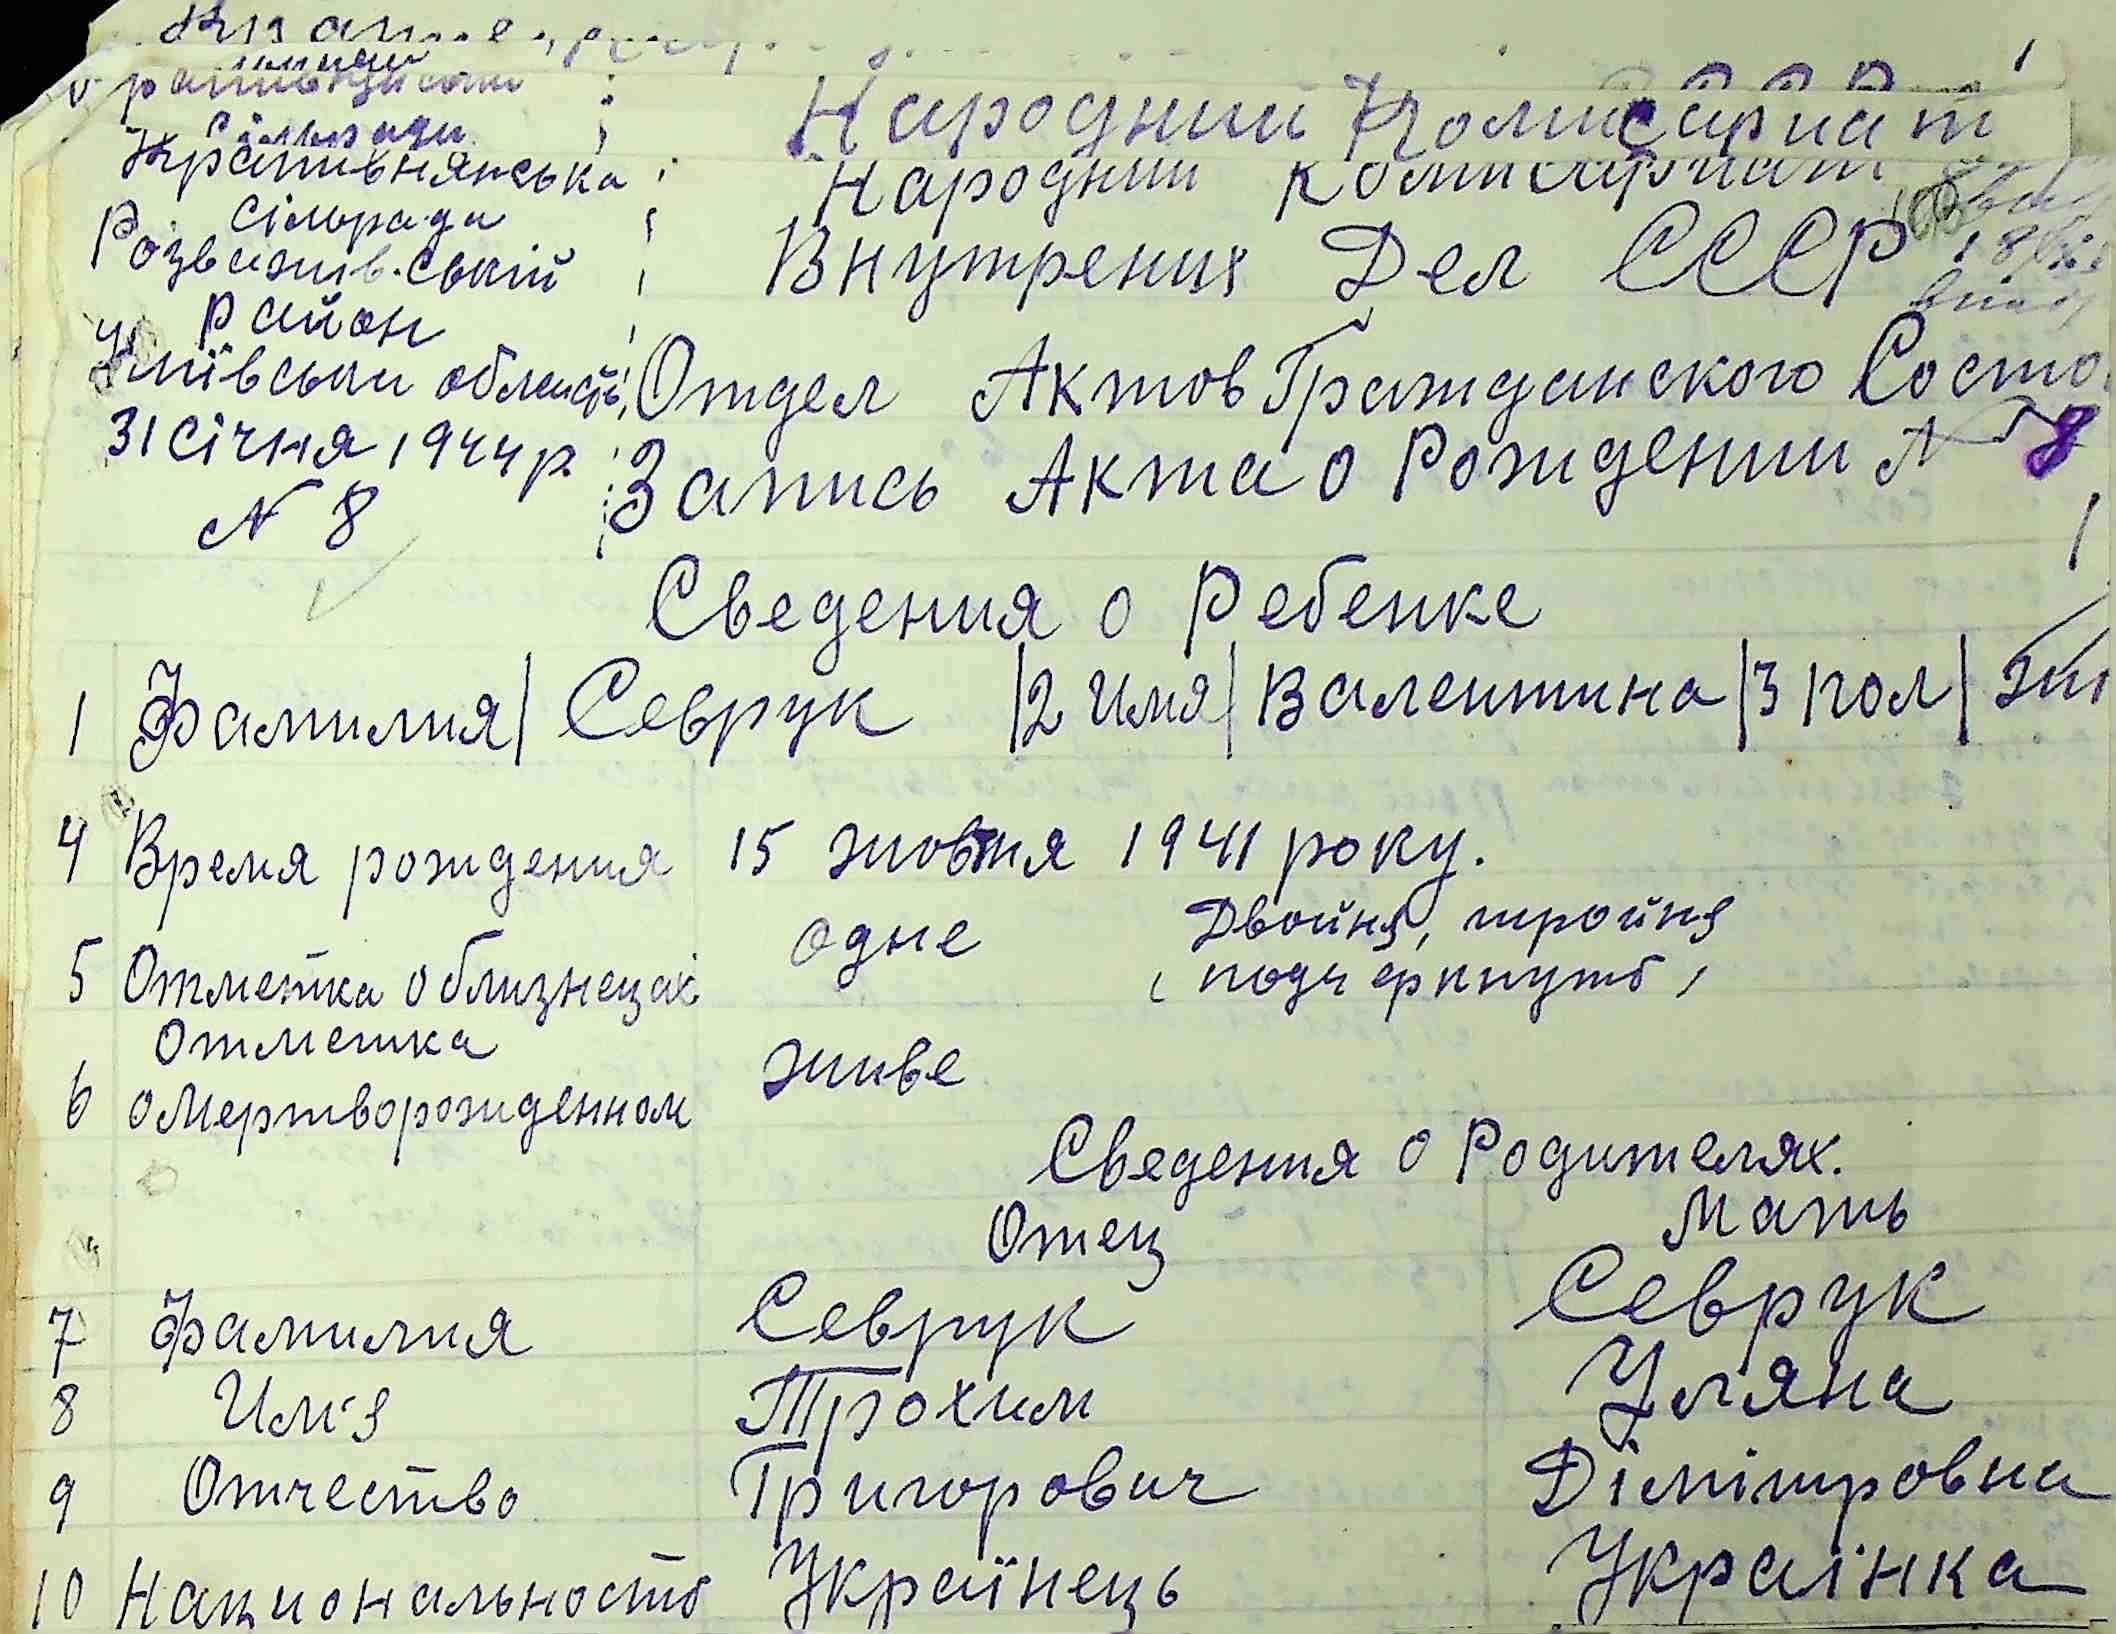 Народний Комисариат
Сільради
Кропивнянська : Народний Комисариат
Сільрада
Розважів.ській : Внутрених Дел СССР
район
Київськи область Отдел Актов Гражданского Состо
31 Січня 1944 р. Запись Акта о Рождении № 8
№ 8
Сведения о Ребенке
1 Фамилия | Севрук | 2 Имя | Валентина | 3 пол |
4 Время рождения 15 жовтня 1941 року.
5 Отметка о близнецах одне Двойня, тройня
(подчеркнуть)
Отметка
6 о Мертворожденном живе
Сведения о Родителях.
Отец Мать
7 Фамилия Севрук Севрук
8 Им'я Трохим Уляна
9 Отчество Григорович Дімітровна
10 Национальность Українець Українка